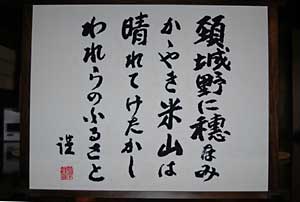 頸城野に穂なみ
かゞやき米山は
晴れてけたかし
われらのふるさと